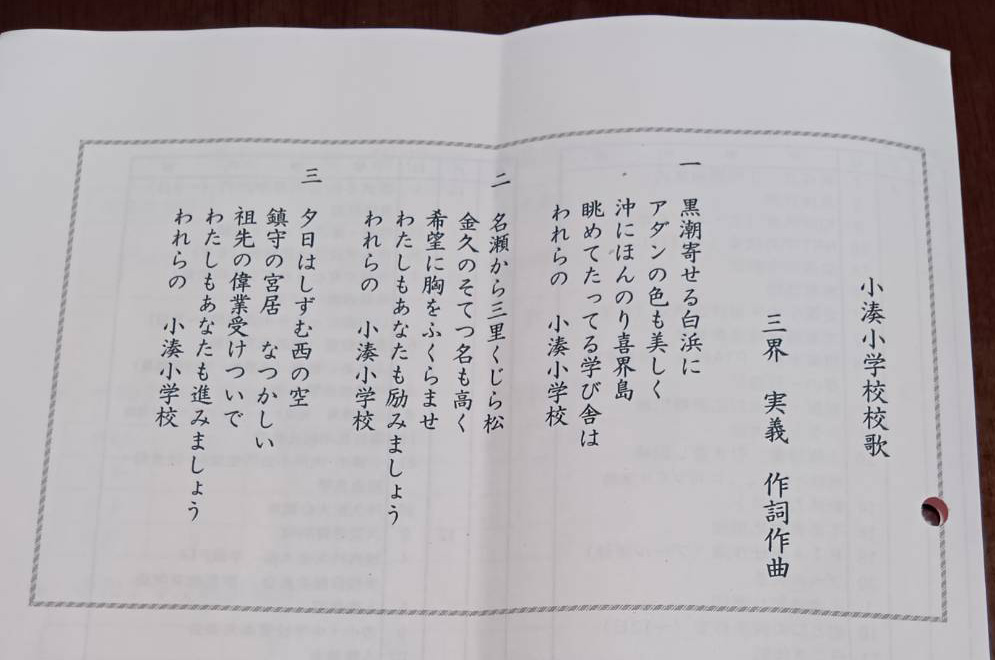 小湊小学校校歌
三界 実義 作詞作曲
一
黒潮寄せる白浜に
アダンの色も美しく
沖にほんのり喜界島
眺めてたってる学び舎は
われらの 小湊小学校
二
名瀬から三里くじら松
金久のそてつ名も高く
希望に胸をふくらませ
わたしもあなたも励みましょう
われらの 小湊小学校
三
夕日はしずむ西の空
鎮守の宮居 なつかしい
祖先の偉業受けついで
わたしもあなたも進みましょう
われらの 小湊小学校